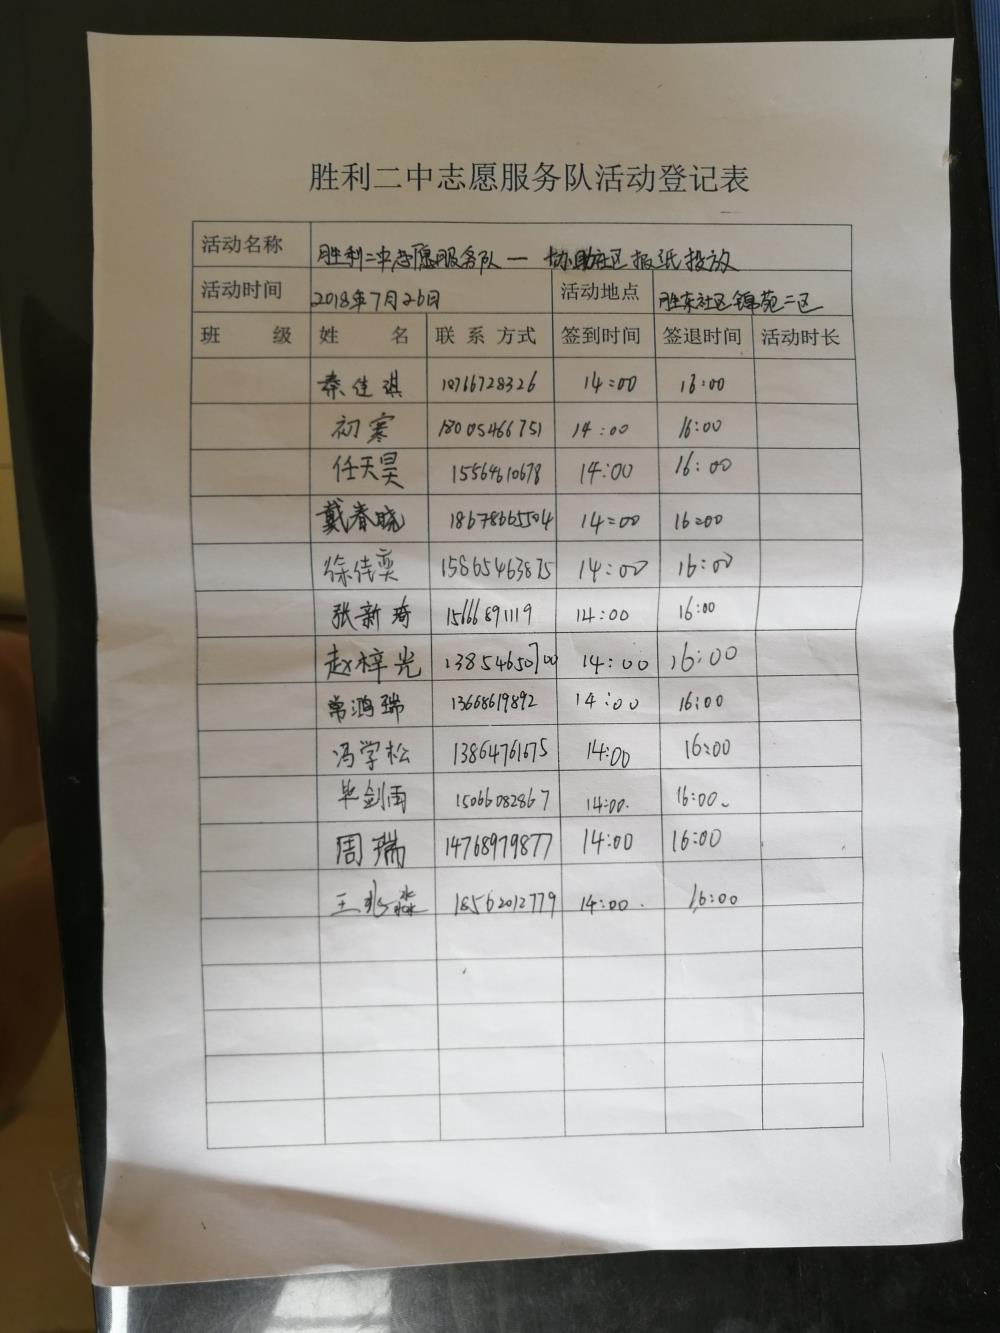 胜利二中志愿服务队活动登记表
活动名称 胜利二中志愿服务队一 协助社区报纸投放
活动时间 2018年7月26日 活动地点 胜东社区锦苑二区
班 级 姓 名 联 系 方式 签到时间 签退时间 活动时长
秦佳琪 14:00 16:00
初寒 18005466751 14:00 16:00
任天昊 15564610678 14:00 16:00
戴春晓 18678665504 14:00 16:00
徐佳奕 15865463875 14:00 16:00
张新琦 14:00 16:00
赵梓光 13854650700 14:00 16:00
常鸿瑞 13668619892 14:00 16:00
冯学松 13864761675 14:00 16:00
毕剑雨 15066082867 14:00. 16:00.
周瑞 14768979877 14:00 16:00
王兆淼 18562012779 14:00. 16:00